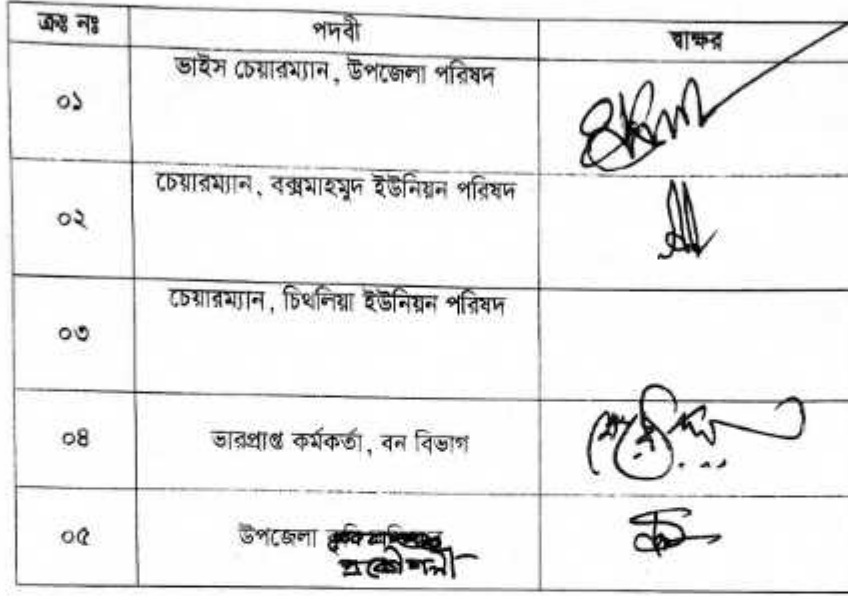 ক্রঃ নঃ পদবী স্বাক্ষর
০১ ভাইস চেয়ারম্যান, উপজেলা পরিষদ
০২ চেয়ারম্যান, বক্সমাহমুদ ইউনিয়ন পরিষদ
০৩ চেয়ারম্যান, চিথলিয়া ইউনিয়ন পরিষদ
০৪ ভারপ্রাপ্ত কর্মকর্তা, বন বিভাগ
০৫ উপজেলা
প্রকৌশলী